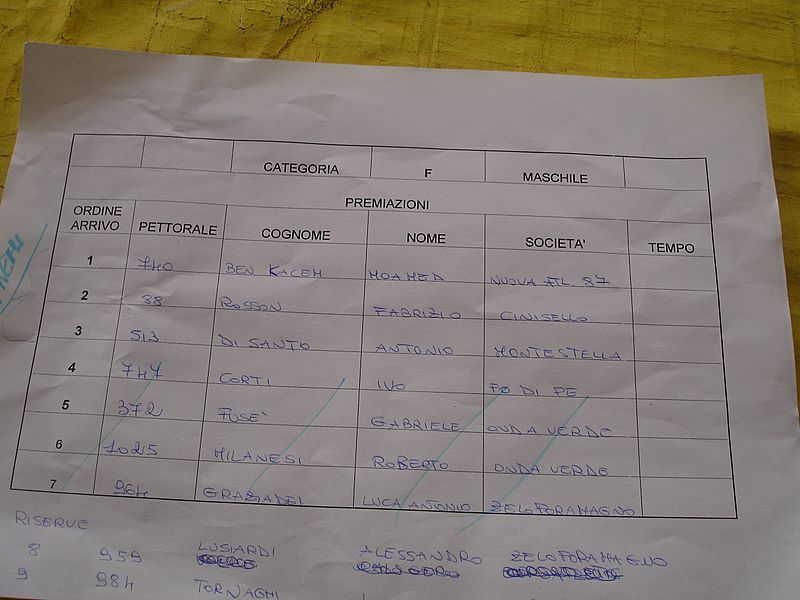 CATEGORIA F MASCHILE
PREMIAZIONI
ORDINE ARRIVO PETTORALE COGNOME NOME SOCIETA' TEMPO
1 740 BEN KACEM MOAMED NUOVA ATL. 87
2 88 ROSSON FABRIZIO CINISELLO
3 513 DI SANTO ANTONIO MONTESTELLA
4 747 CORTI IVO FO DI PE
5 372 FUSE' GABRIELE ONDA VERDE
6 1025 MILANESI ROBERTO ONDA VERDE
7 964 GRAZIADEI LUCA ANTONIO ZELOFORAMAGNO
RISERVE
8 959 LUSIARDI ALESSANDRO ZELOFORAMAGNO
9 984 TORNAGHI